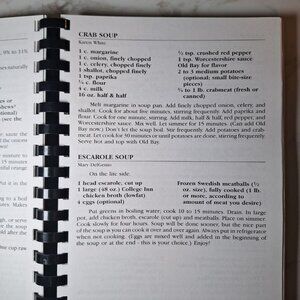 CRAB SOUP
Karen White
1 c. margarine
1 c. onion, finely chopped
1 c. celery, chopped finely
1 shallot, chopped finely
1 tsp. paprika
¼ c. flour
4 c. milk
16 oz. half & half
½ tsp. crushed red pepper
1 tsp. Worcestershire sauce
Old Bay for flavor
2 to 3 medium potatoes
(optional; small bite-size
pieces)
¾ to 1 lb. crabmeat (fresh or
canned)
Melt margarine in soup pan. Add finely chopped onion, celery and
shallot. Cook for about five minutes, stirring frequently. Add paprika and flour.
Cook for one minute, stirring. Add milk, half & half, red pepper; and
Worcestershire sauce. Mix well. Let simmer for 15 minutes. (Can add Old
Bay now.) Don't let the soup boil. Stir frequently. Add potatoes and crab-
meat. Let cook for 30 minutes or until potatoes are done, stirring frequently.
Serve hot and top with Old Bay.
ESCAROLE SOUP
Mary DelGenio
On the lite side.
1 head escarole, cut up
1 large (48 oz.) College Inn
chicken broth (lowfat)
4 eggs (optional)
Frozen Swedish meatballs (½
oz. size), fully cooked (1 lb.
or more, according to
amount of meat you desire)
Put greens in boiling water; cook 10 to 15 minutes. Drain. In large
pot, add chicken broth, escarole (cut up) and meatballs. Place on simmer.
Cook slowly for four hours. Soup will be done sooner, but the nice part
of the soup is you can cook it over and over again. Always put in refrigerator
when not cooking. (Eggs are mixed well and added in the beginning
of the soup or at the end - this is your choice.) Enjoy!